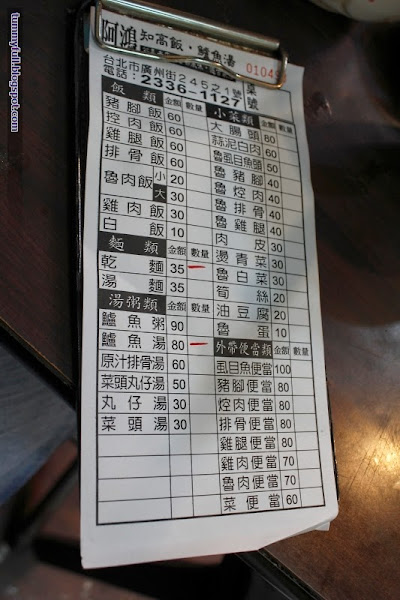 阿鴻 知高飯・鱸魚湯
桌號
台北市廣州街245之1號
電話：2336-1127
飯類 金額 數量
豬腳飯 60
控肉飯 60
雞腿飯 60
排骨飯 60
魯肉飯 小 20
大 30
雞肉飯 30
白飯 10
麵類 金額 數量
乾麵 35
湯麵 35
湯粥類 金額 數量
鱸魚粥 90
鱸魚湯 80
原汁排骨湯 60
菜頭丸仔湯 50
丸仔湯 30
菜頭湯 30
小菜類 金額 數量
大腸頭 80
蒜泥白肉 60
魯虱目魚頭 50
魯豬腳 40
魯焢肉 40
魯排骨 40
魯雞腿 40
肉皮 30
燙青菜 30
魯白菜 30
筍絲 20
油豆腐 20
魯蛋 10
外帶便當類 金額 數量
虱目魚便當 100
豬腳便當 80
焢肉便當 80
排骨便當 80
雞腿便當 80
雞肉便當 70
魯肉便當 70
菜便當 60
tummyfull.blogspot.com